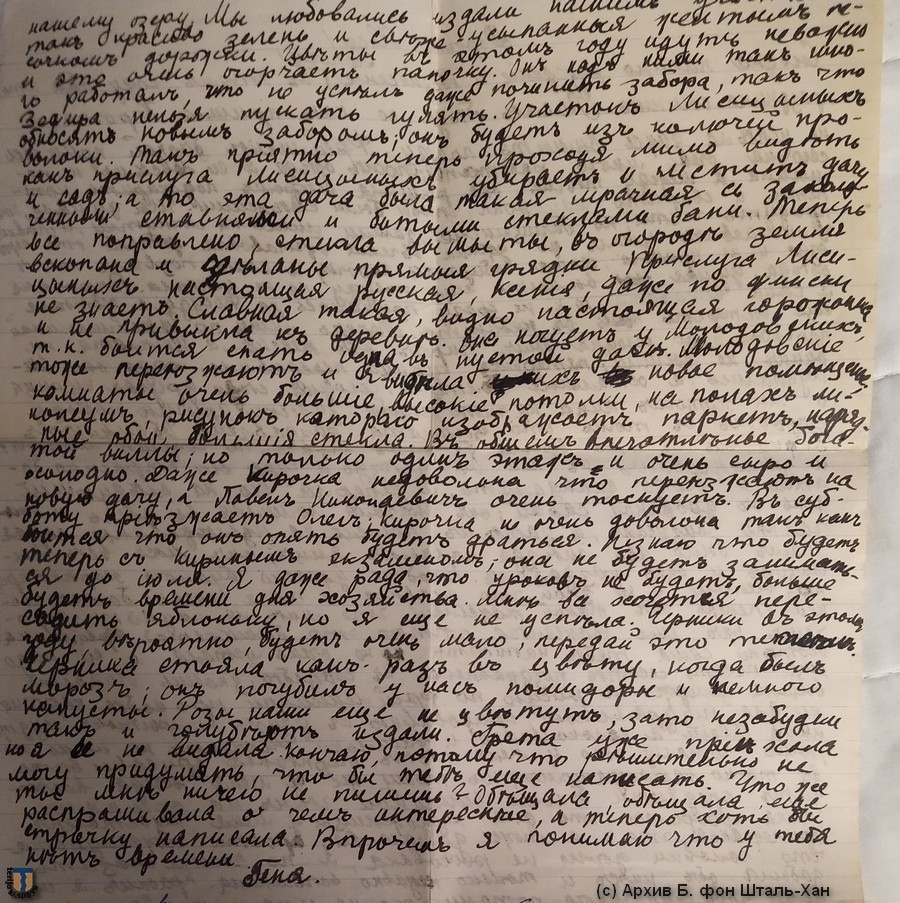 нашему озеру. Мы любовались издали нашимъ
такъ красиво зелень и свѣже усыпанныя желтымъ пе-
сочкомъ дорожки. Цвѣты въ этомъ году идутъ неважно
и это очень огорчаетъ папочку. Онъ надъ ними такъ мно-
го работалъ, что не успѣлъ даже починить забора, такъ что
Задира нельзя пускать гулять. Участокъ Лисицыныхъ
обносятъ новымъ заборомъ; онъ будетъ изъ колючей про-
волоки. Такъ пріятно теперь проходя мимо видѣть
какъ прислуга Лисицыныхъ убираетъ и чиститъ дачу
и садъ; а то эта дача была такая мрачная съ заколо-
ченными ставнями и битыми стеклами бани. Теперь
все поправлено, стекла вымыты, въ огородѣ земля
вскопана и сдѣланы прямыя грядки. Прислуга Лиси-
цыныхъ настоящая русская, Ксенія, даже по фински
не знаетъ. Славная такая, видно настоящая горожанка
и не привыкла къ деревнѣ. Она ночуетъ у Молодовскихъ,
т.к. боится спать одна въ пустой дачѣ. Молодовскіе
тоже переѣзжаютъ и я видѣла ихъ новое помѣщеніе
комнаты очень большіе, высокіе потолки, на полахъ ли-
нолеумъ, рисунокъ котораго изображаетъ паркетъ, наряд-
ные обои, большія стекла. Въ общемъ впечатлѣнье бога-
той виллы; но только одинъ этажъ и очень сыро и
холодно. Даже Кирочка недовольна что переѣзжаютъ на
новую дачу, а Павелъ Николаевичъ очень тоскуетъ. Въ суб-
боту пріѣзжаетъ Олегъ, Кирочка не очень довольна такъ какъ
боится что онъ опять будетъ драться. Незнаю что будетъ
теперь съ Кириннымъ екзаменомъ; она не будетъ занимать-
ся до іюля. Я даже рада, что уроковъ не будетъ, больше
будетъ времени для хозяйства. Мнѣ все хочется пере-
садить яблоньку, но я еще не успѣла. Черники въ этомъ
году, вѣроятно, будетъ очень мало, передай это
Черника стояла какъ-разъ въ цвѣту, когда былъ
морозъ; онъ погубилъ у насъ помидоры и немного
капусты. Розы наши еще не цвѣтутъ, зато незабудки
такъ и голубѣютъ издали. Грета уже пріѣхала
но я ее не видала. Кончаю, потому что рѣшительно не
могу придумать, что бы тебѣ еще написать. Что же
ты мнѣ ничего не пишешь? Обѣщала, обѣщала, еще
распрашивала о чемъ интереснѣе, а теперь хоть бы
строчку написала. Впрочемъ я понимаю что у тебя
нѣтъ времени.
Геня.
(с) Архив Б. фон Шталь-Хан